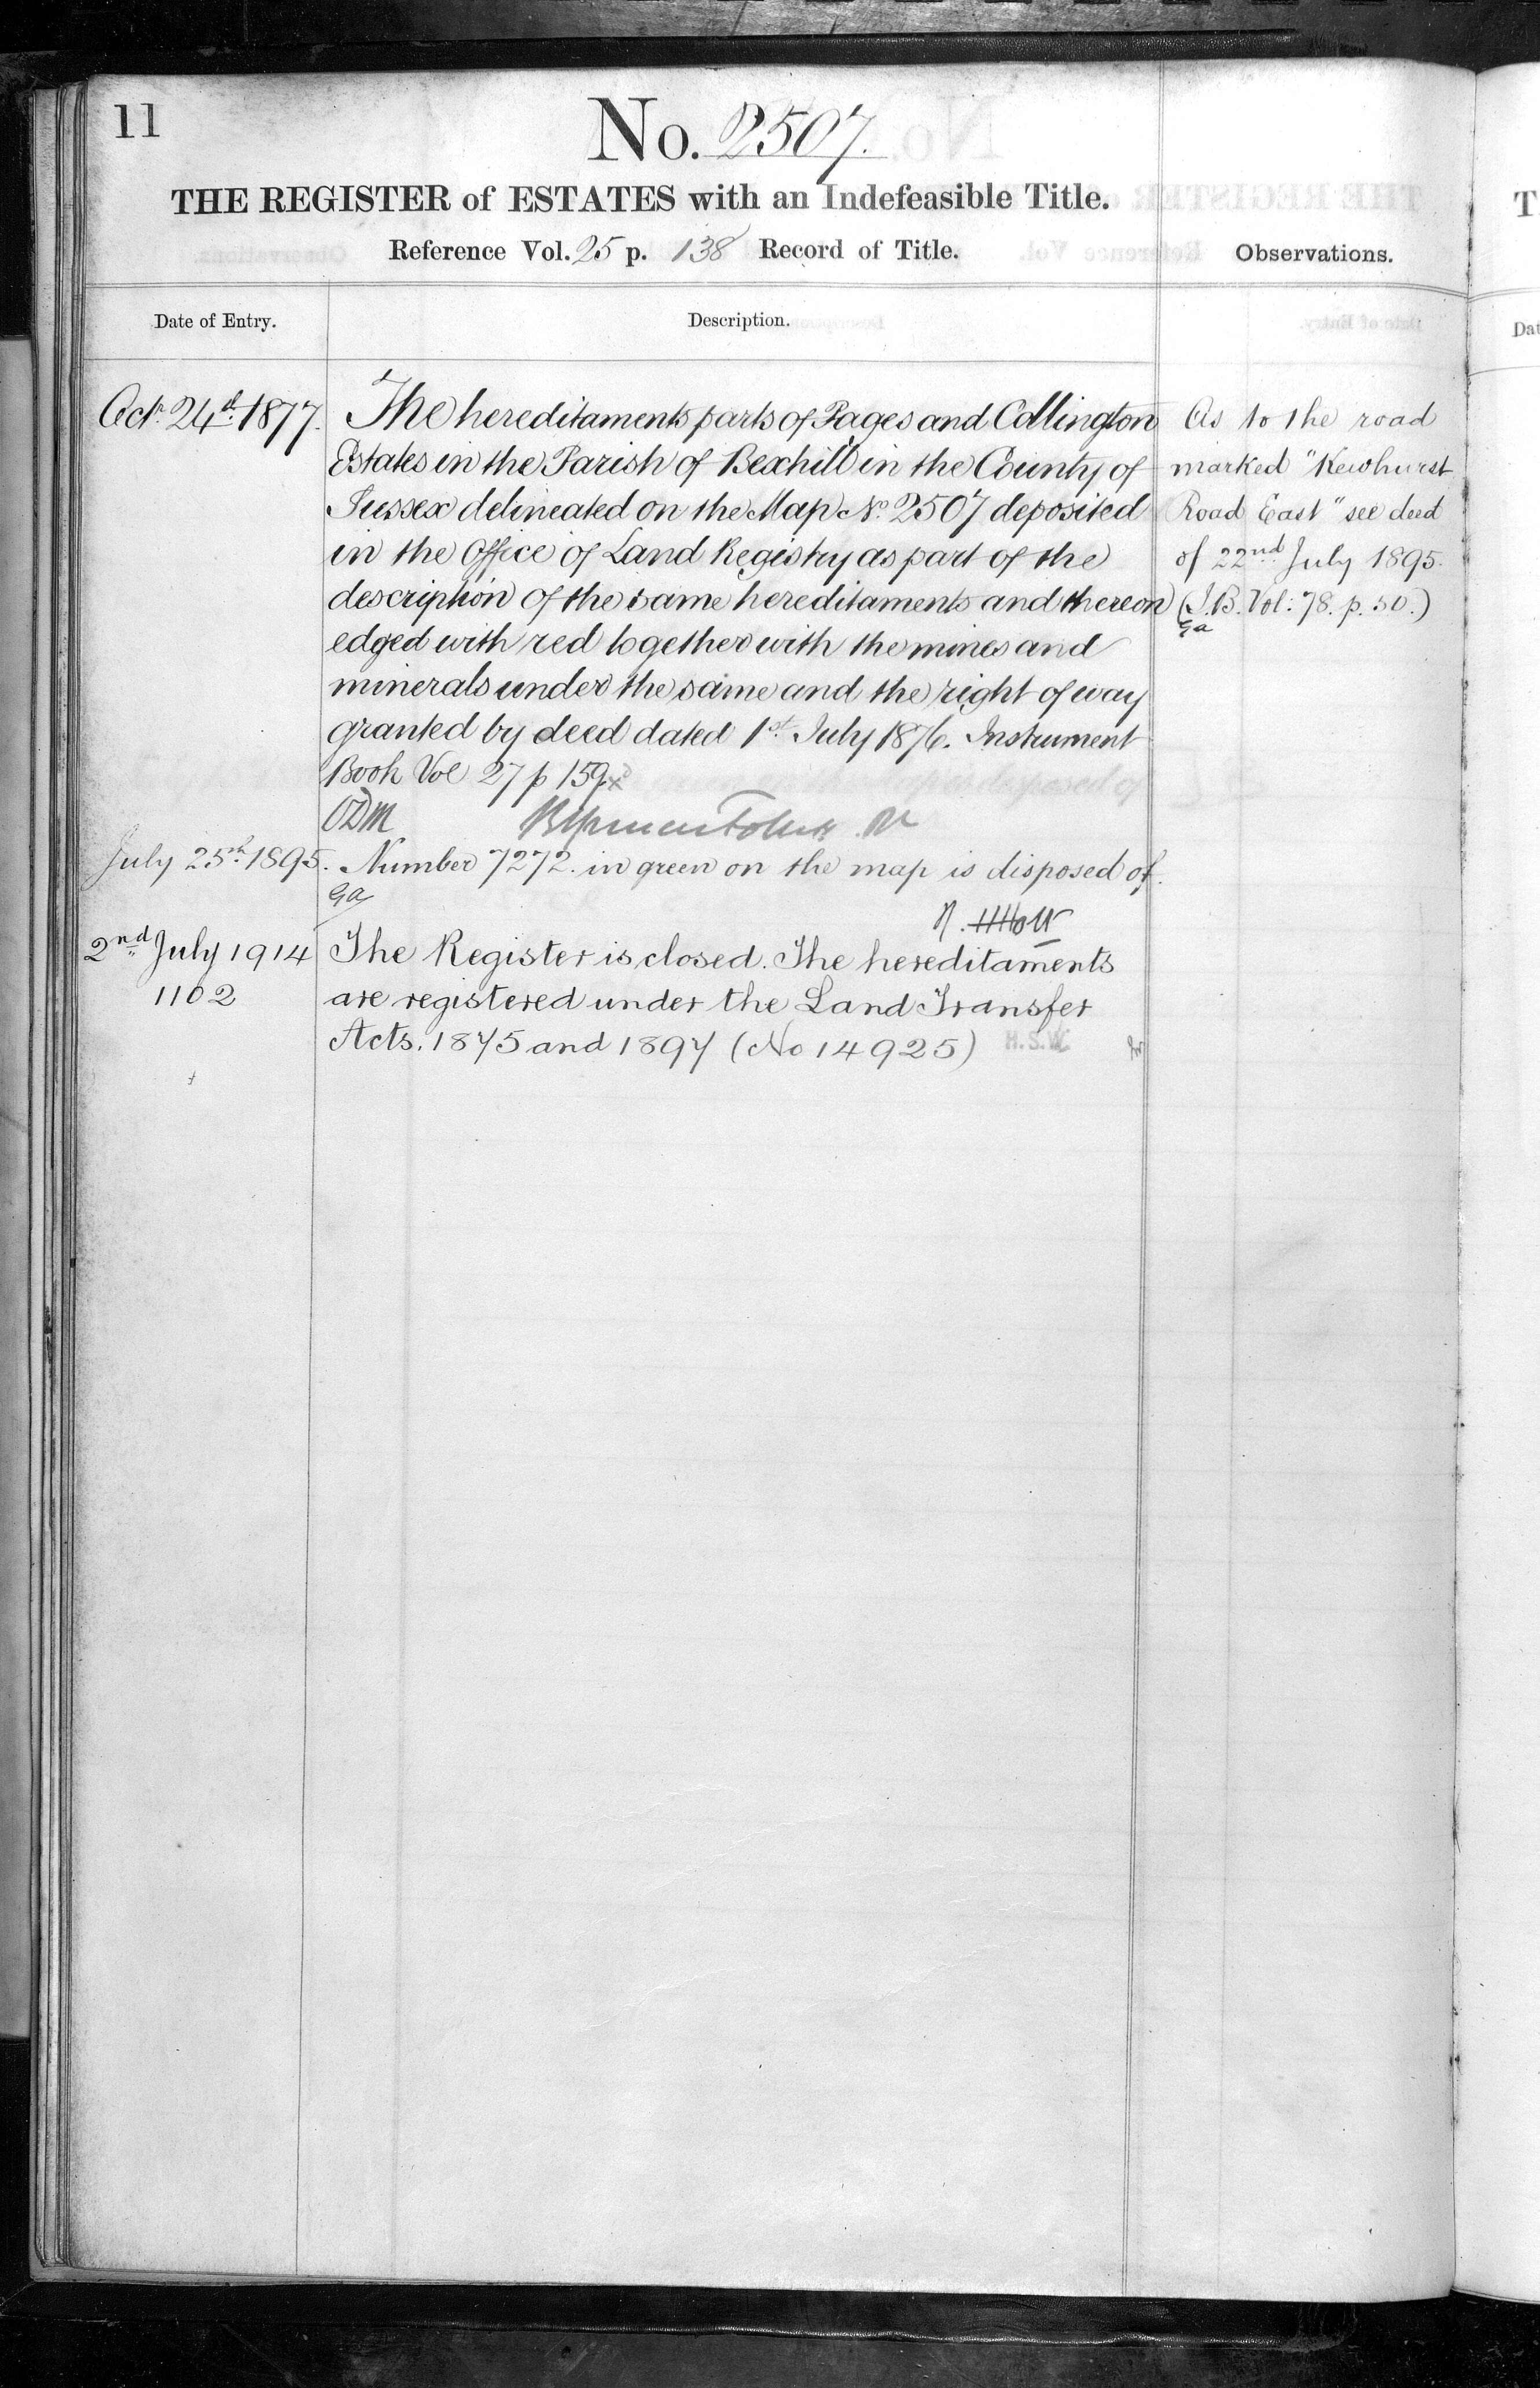 11
No. 2507.
THE REGISTER of ESTATES with an Indefeasible Title.
Reference Vol. 25 p. 138 Record of Title.
Observations.
Date of Entry.
Description.
Octr. 24th. 1877.
The hereditaments parts of Pages and Collington
Estates in the Parish of Bexhill in the County of
Sussex delineated on the Map No. 2507 deposited
in the Office of Land Registry as part of the
description of the same hereditaments and thereon
edged with red together with the mines and
minerals under the same and the right of way
granted by deed dated 1st. July 1876. Instrument
Book Vol 27 p 159
ODM
As to the road
marked "Kewhurst
Road East" see deed
of 22nd July 1895.
(I.B. Vol: 78. p. 50.)
Ga
July 25th. 1895.
Number 7272. in green on the map is disposed of.
Ga
2nd July 1914
1102
The Register is closed. The hereditaments
are registered under the Land Transfer
Acts. 1875 and 1897 (No 14925) H.S.W.
T
Dat